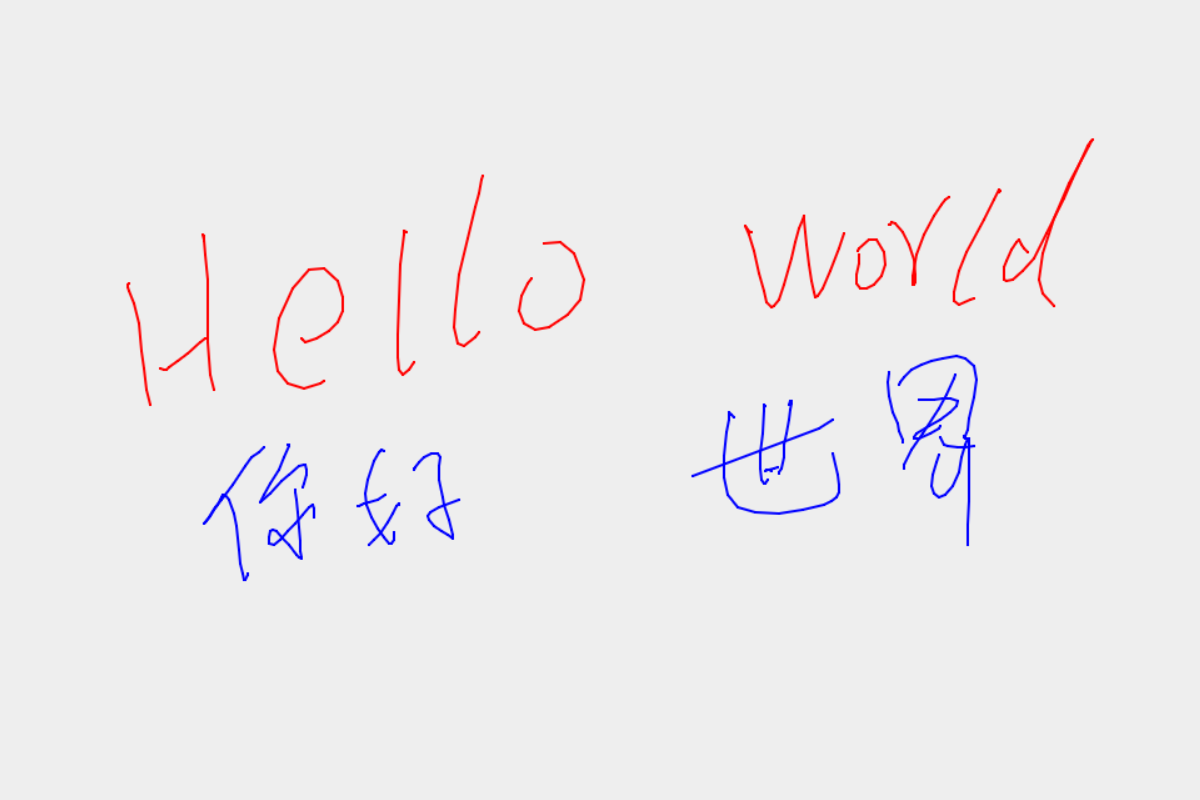 Hello world
你好 世界